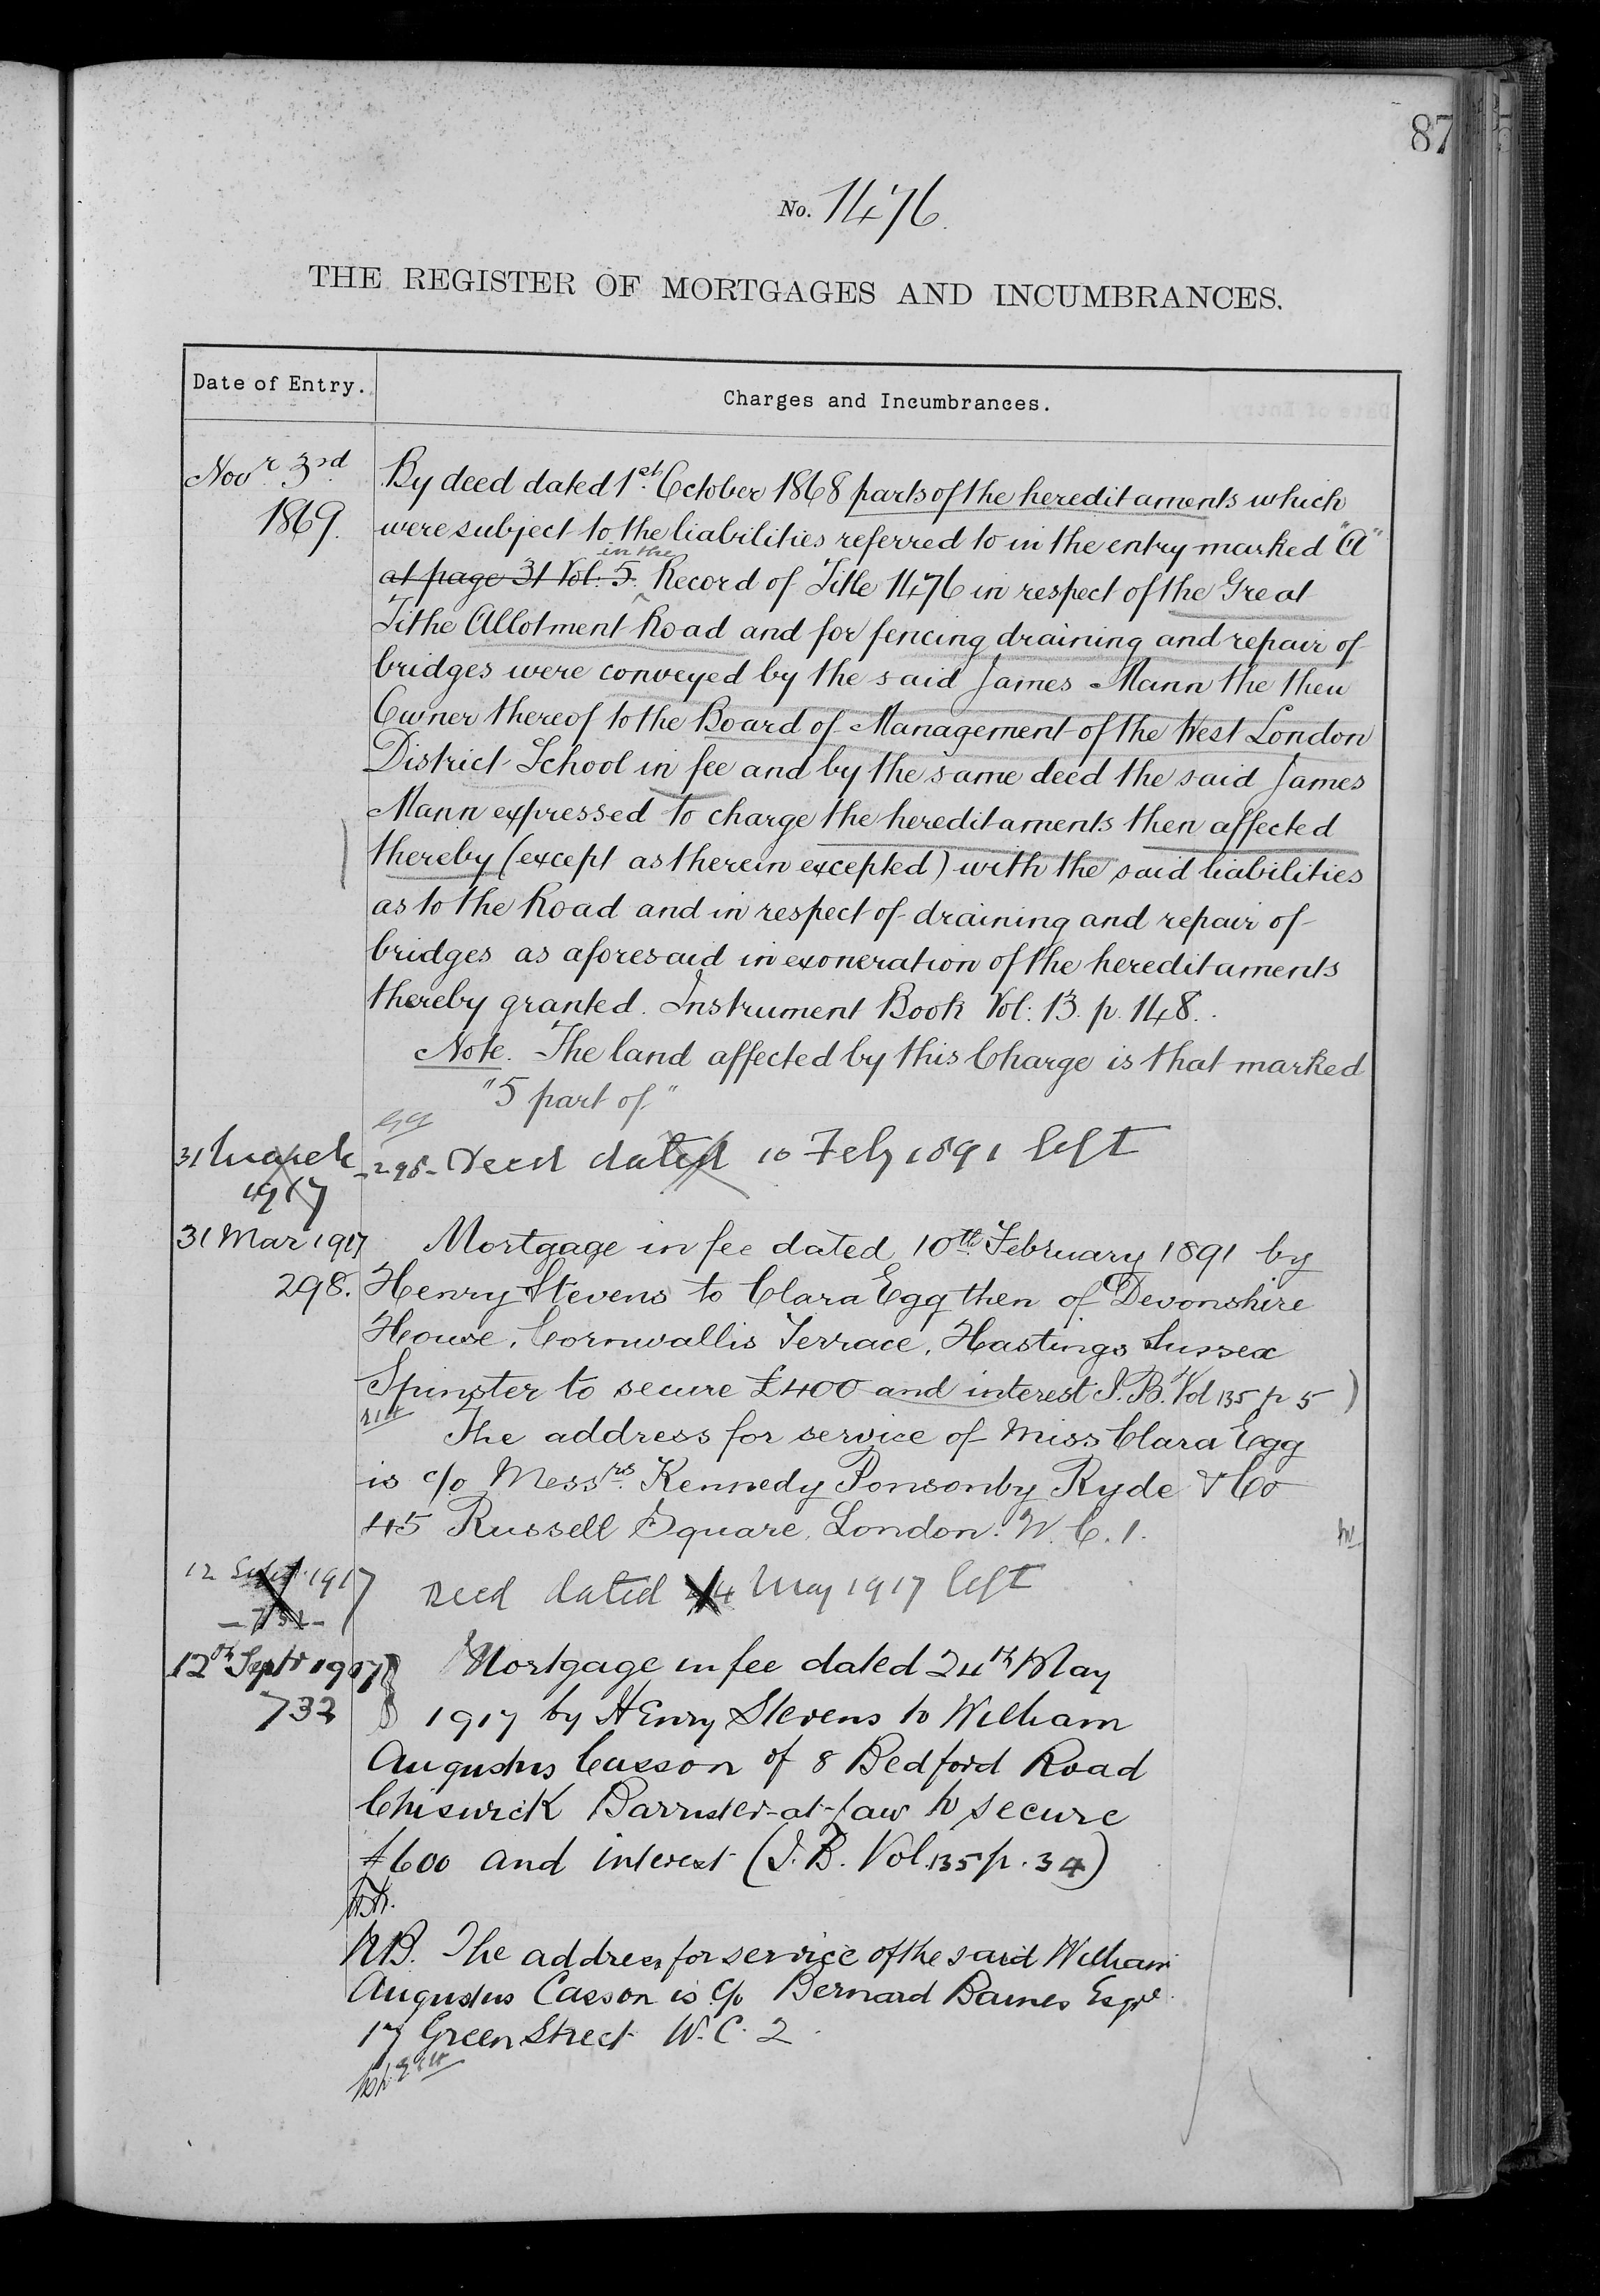 87
No. 1476.
THE REGISTER OF MORTGAGES AND INCUMBRANCES.
Date of Entry.
Charges and Incumbrances.
Novr. 3rd.
1869.
By deed dated 1st. October 1868 parts of the hereditaments which
were subject to the liabilities referred to in the entry marked "A"
in the
at page 31 Vol: 5. Record of Title 1476 in respect of the Great
Tithe Allotment Road and for fencing draining and repair of
bridges were conveyed by the said James Mann the then
Owner thereof to the Board of Management of the West London
District School in fee and by the same deed the said James
Mann expressed to charge the hereditaments then affected
thereby (except as therein excepted) with the said liabilities
as to the Road and in respect of draining and repair of
bridges as aforesaid in exoneration of the hereditaments
thereby granted. Instrument Book Vol: 13. p. 148.
Note. The land affected by this Charge is that marked
"5 part of"
31 March
1917
-298- Deed dated 10 Feby 1891 left
31 Mar 1917
298.
Mortgage in fee dated 10th. February 1891 by
Henry Stevens to Clara Egg then of Devonshire
House, Cornwallis Terrace, Hastings Sussex
Spinster to secure £400 and interest I.B. Vol 135 p 5)
The address for service of Miss Clara Egg
is c/o Messrs. Kennedy Ponsonby Ryde & Co
45 Russell Square, London. W.C.1.
12 Sept. 1917
-732-
Deed dated 24 May 1917 left
12th Septr 1917
732
Mortgage in fee dated 24th May
1917 by Henry Stevens to William
Augustus Casson of 8 Bedford Road
Chiswick Barrister-at-Law to secure
£600 and interest (I.B. Vol. 135 p. 34)
NB. The address for service of the said William
Augustus Casson is c/o Bernard Baines Esqre.
17 Green Street W.C.2.